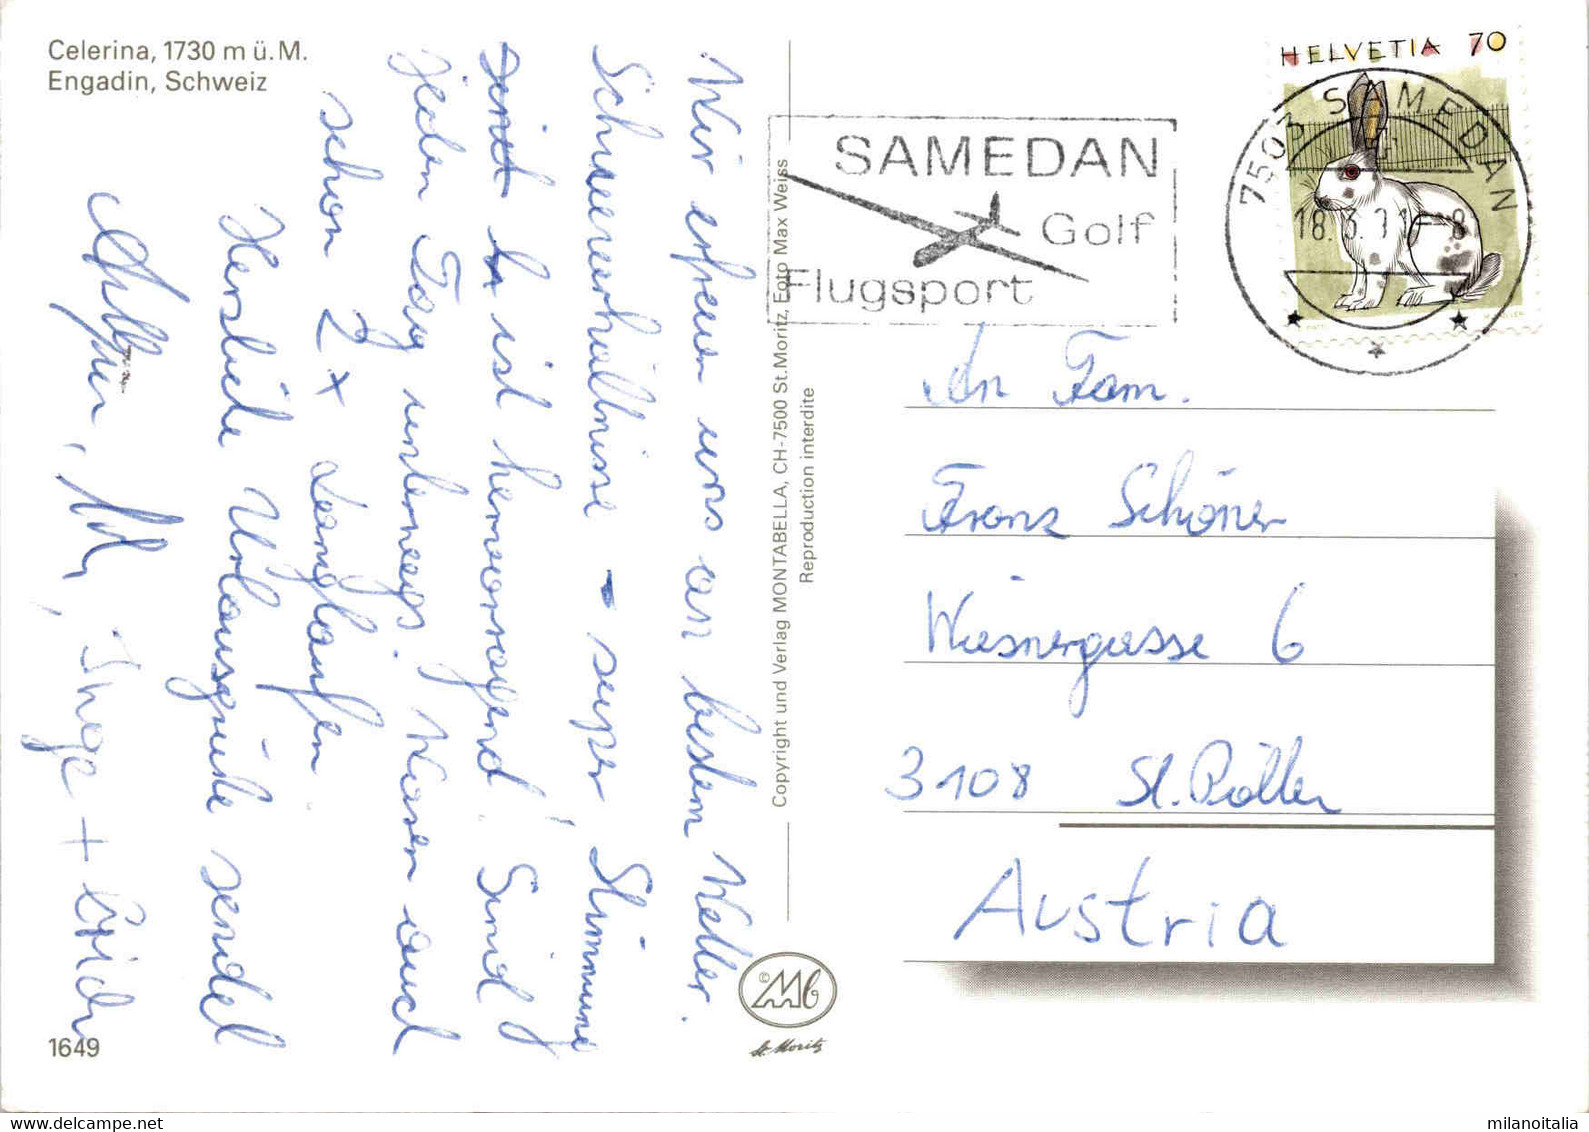 Celerina, 1730 m ü. M.
Engadin, Schweiz
Wir erfreuen uns an bestem Wetter.
Schneeverhältnisse – super Stimmung
ist hervorragend! Sind
jeden Tag unterwegs. Waren auch
schon 2 x Langlaufen.
Herzliche Urlaubsgrüße sendet
Inge + Erich
1649
Copyright und Verlag MONTABELLA, CH-7500 St. Moritz, Foto Max Weiss
Reproduction interdite
© Mb
St. Moritz
SAMEDAN
Golf
Flugsport
HELVETIA 70
7503 SAMEDAN
18.3.91 - 8
An Fam.
Franz Schöner
Wiesnergasse 6
3108 St. Pölten
Austria
milanoitalia